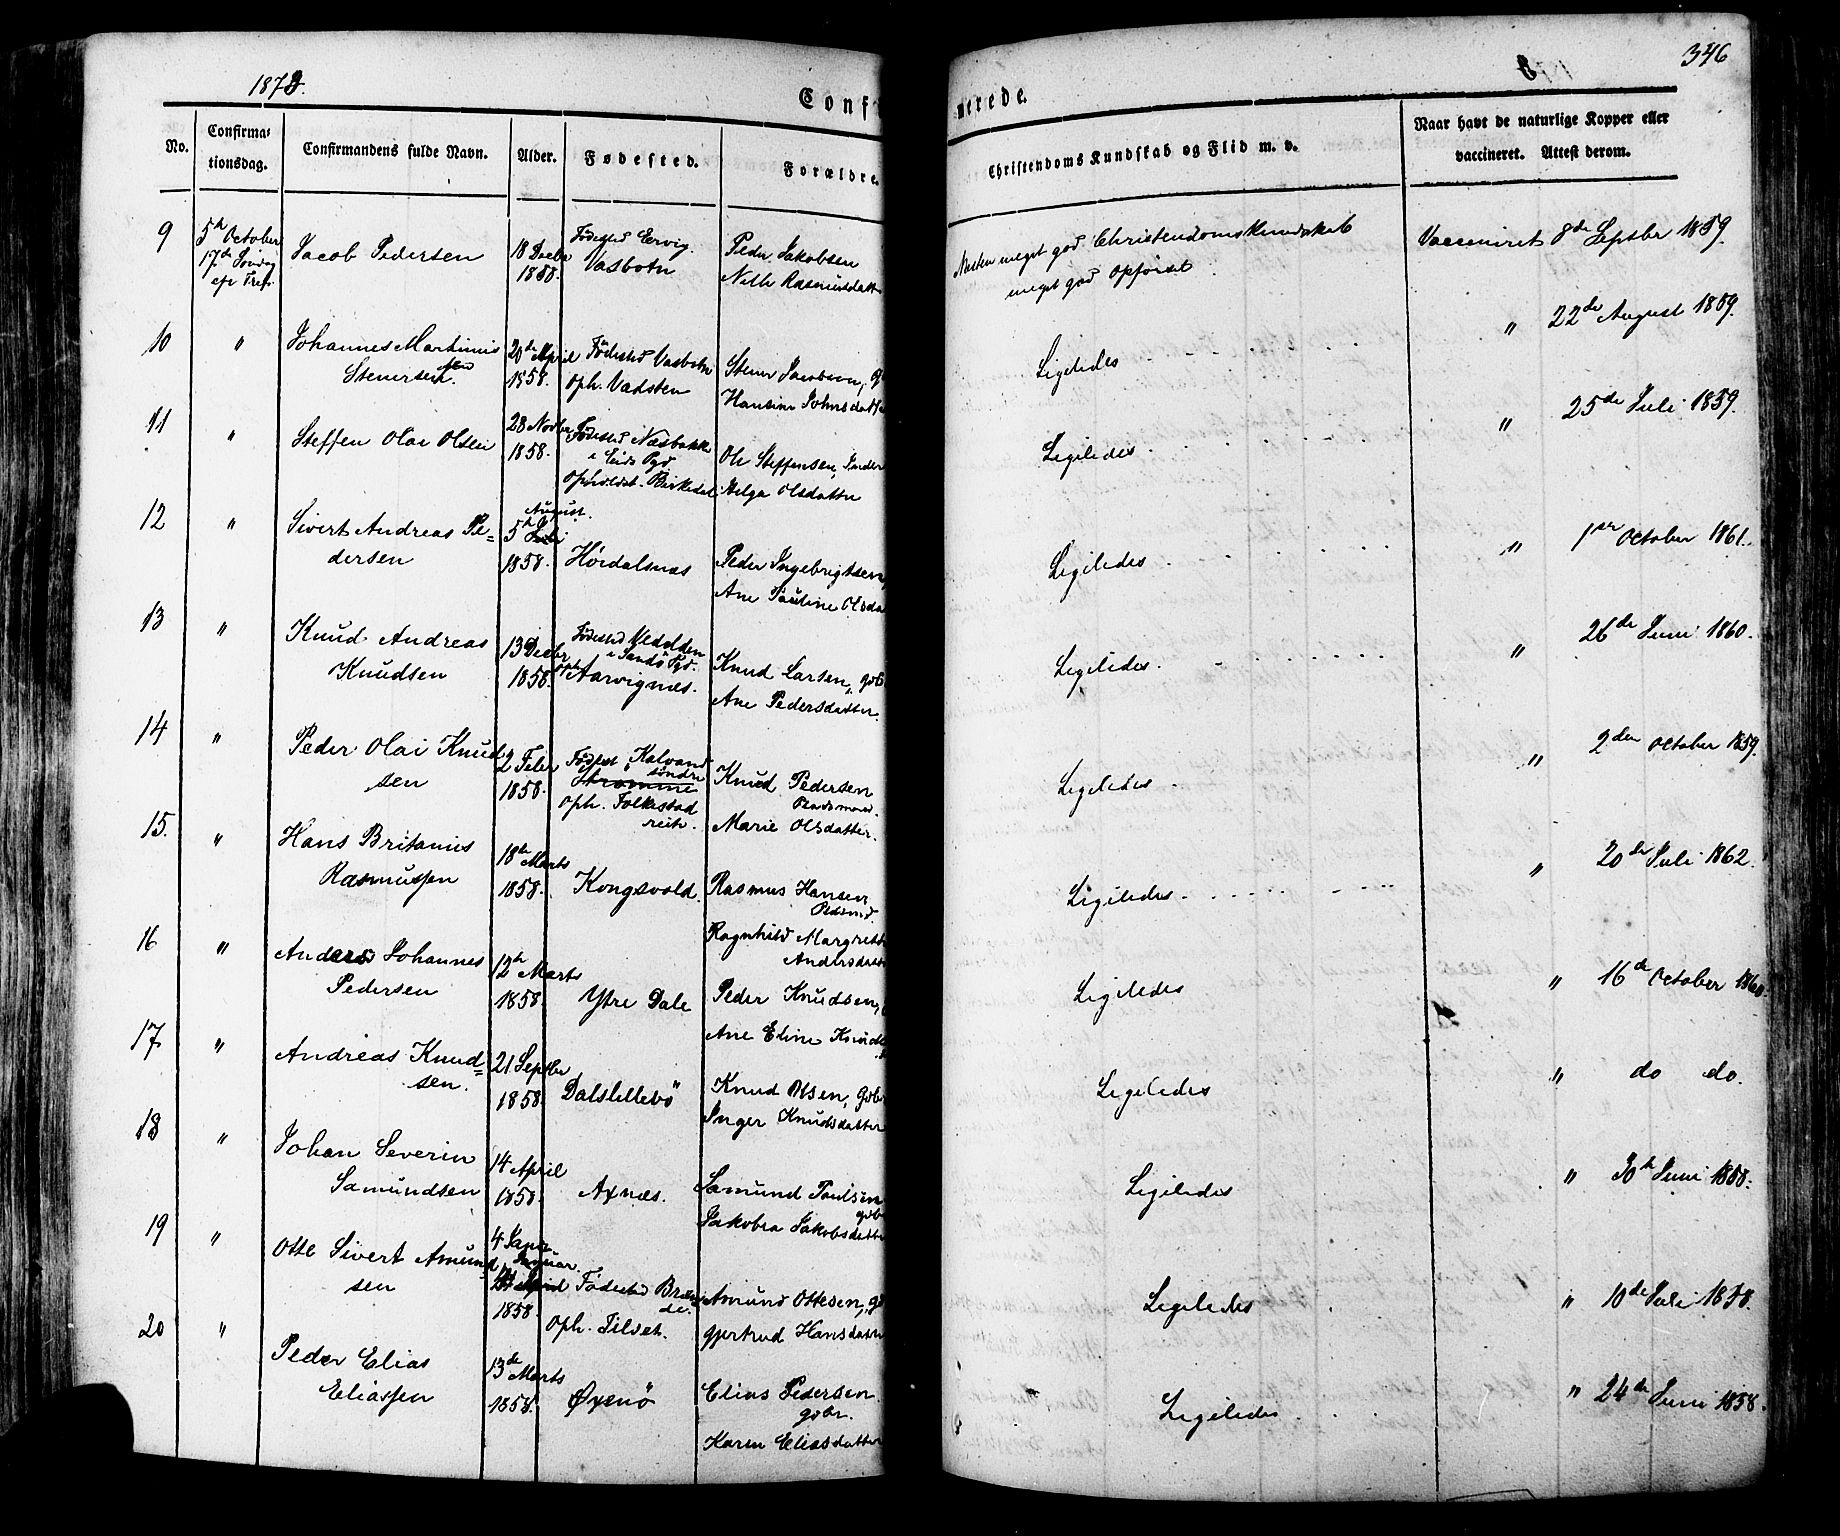 1873.
Conf
No.
Confirma-
tionsdag.
Confirmandens fulde Navn.
Alder.
Fødested.
Forældre.
9
5th October
17de Søndag
Jacob Pedersen
18 Decbr
1858.
Fødested Eervig
Vasbotn
Peder Jakobsen
Rasmusdatt
10
"
Johannes Martinus
Stenersen
20de April
1858.
Fødested Vasbotn
oph. Vadsten
Stener Jacobsen,
Hansine Johnsdatt
11
"
Steffen Olai Olsen
28 Novbr
1858.
Fødested Næsbakk
i Eids Pgd
Opholdst. Birkedal
Ole Steffensen, Inder
Helga Olsdatter
12
"
Sivert Andreas Pe-
dersen
August
5th Juli
1858.
Høidalsnæs
Peder Ingebrigtsen,
Ane Pauline Olsda
13
"
Knud Andreas
Knudsen
13 Decbr
1858.
Fødested
i Sandø Pgd.
oph. Aarvignæs.
Knud Larsen, gbr
Ane Pedersdatter.
14
"
Peder Olai Knud
sen
2 Febr
1858.
Fødest. Kalvand
søndre
Strømme
oph. Folkestad
Knud Pedersen
Pladsmand
Marie Olsdatter.
15.
"
Hans Britanus
Rasmussen
18de Marts
1858.
Kongsvold.
Rasmus Hansen
Pladsmd.
Ragnhild Margrethe
Andersdatt
16
"
Anders Johannes
Pedersen
12te Marts
1858.
Ytre Dale
Peder Knudsen,
Ane Eline Knuds
17
"
Andreas Knud-
sen.
21 Septbr
1858.
Dalslillebö
Knud Olsen, gbr
Inger Knudsdatter
18
"
Johan Severin
Samundsen
14 April
1858.
Axnæs.
Samund Paulsen
gbr
Jakobea Jakobsdatter
19
"
Otte Sivert Amund-
sen
4 Januar.
1858.
Fødested
oph. Tilset.
Amund Ottesen,
Gjertrud Hansdatt
20
"
Peder Elias
Eliassen
13de Marts
1858.
Øxenö
Elias Pedersen
gbr.
Karen Eliasdatter
346
merede.
Christendoms Kundskab og Flid m. v.
Naar havt de naturlige Kopper eller
vaccineret. Attest derom.
Næsten meget god Christendomskundskab
meget god Opførsel.
Vaccineret 8de Septbr 1859.
Ligeledes
" 22de August 1859.
Ligeledes
" 25de Juli 1859.
Ligeledes
" 1ste October 1861.
Ligeledes.
" 26de Juni 1860.
Ligeledes
" 2den October 1859.
Ligeledes.
" 20de Juli 1862.
Ligeledes
" 16de October 1860.
Ligeledes
" do do.
Ligeledes
" 30te Juni 1858.
Ligeledes
" 10de Juli 1858.
Ligeledes
" 24de Juni 1858.